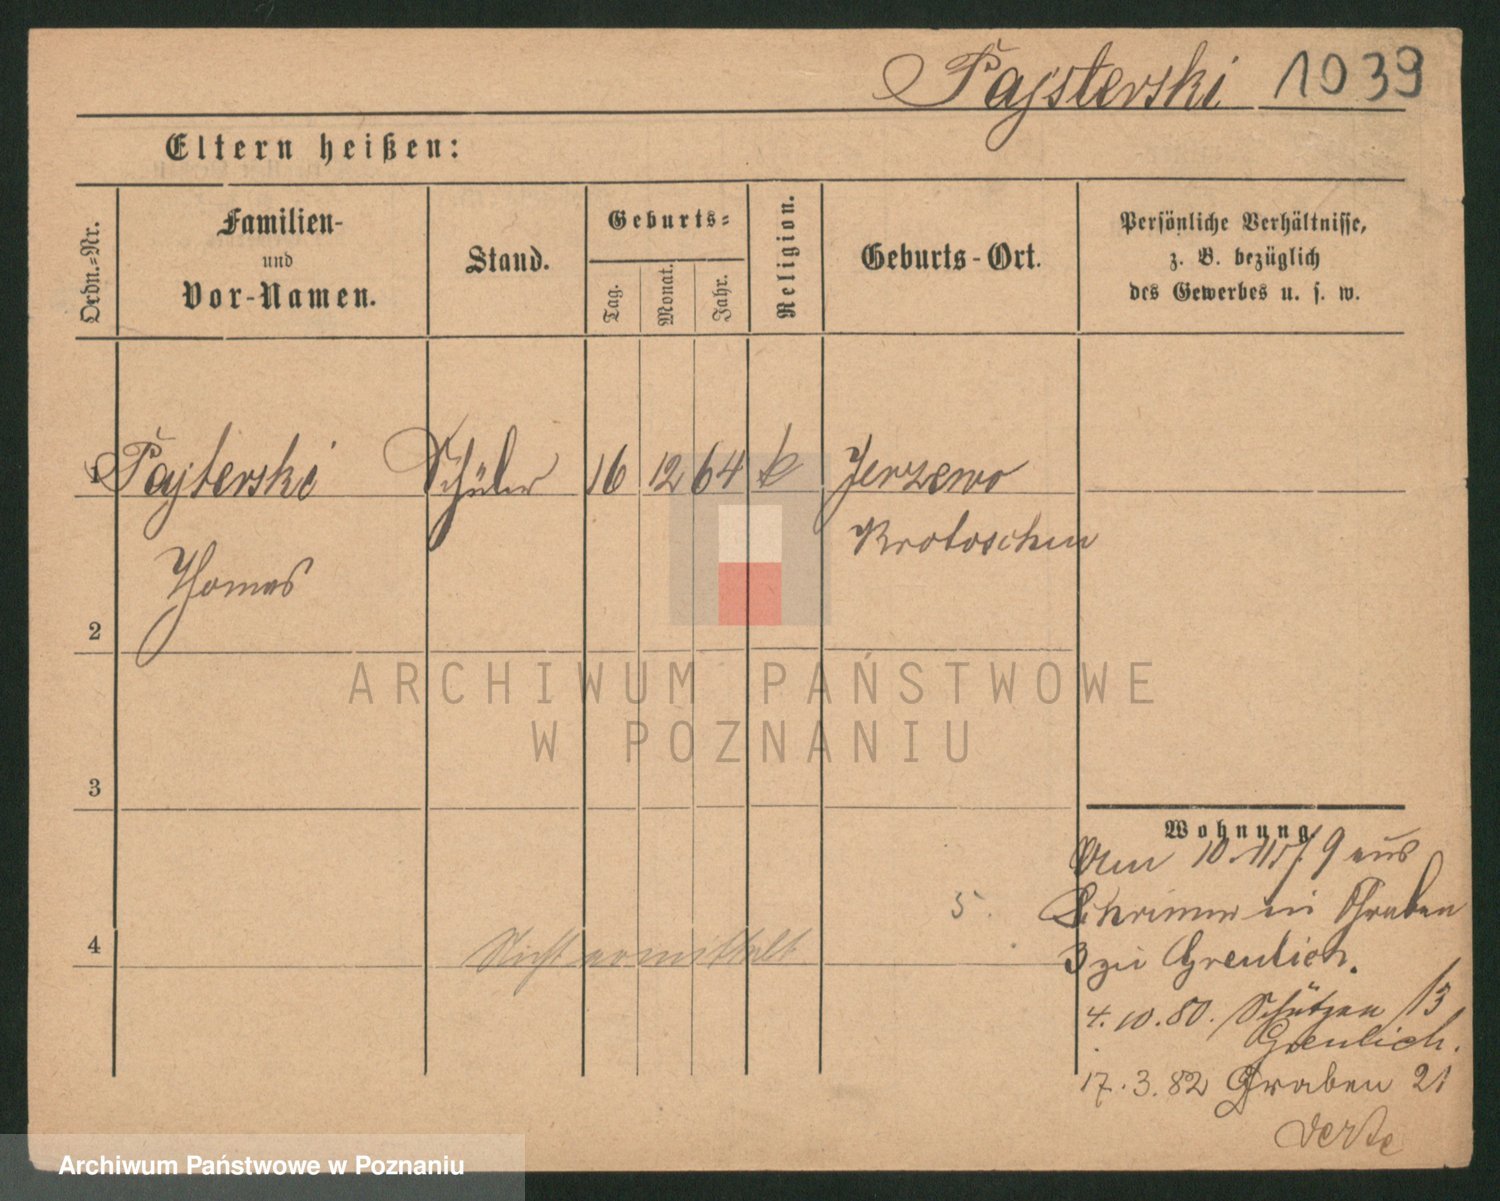 Pajsterski 1039
Eltern heißen:
Ordn.=Nr.
Familien-
und
Vor-Namen.
Stand.
Geburts=
Tag.
Monat.
Jahr.
Religion.
Geburts-Ort.
Persönliche Verhältnisse,
z. B. bezüglich
des Gewerbes u. s. w.
1 Pajterski Schüler 16 12 64 k Jerzewo
Krotoschin
Thomas
2
3
4
Wohnung
Am 10. 11 79 aus
Schrimm in Graben
3 zu Greulich.
4. 10. 80. Schützen 13
Greulich.
17. 3. 82 Graben 21
verte
5.
Nicht ermittelt
ARCHIWUM PAŃSTWOWE
W POZNANIU
Archiwum Państwowe w Poznaniu